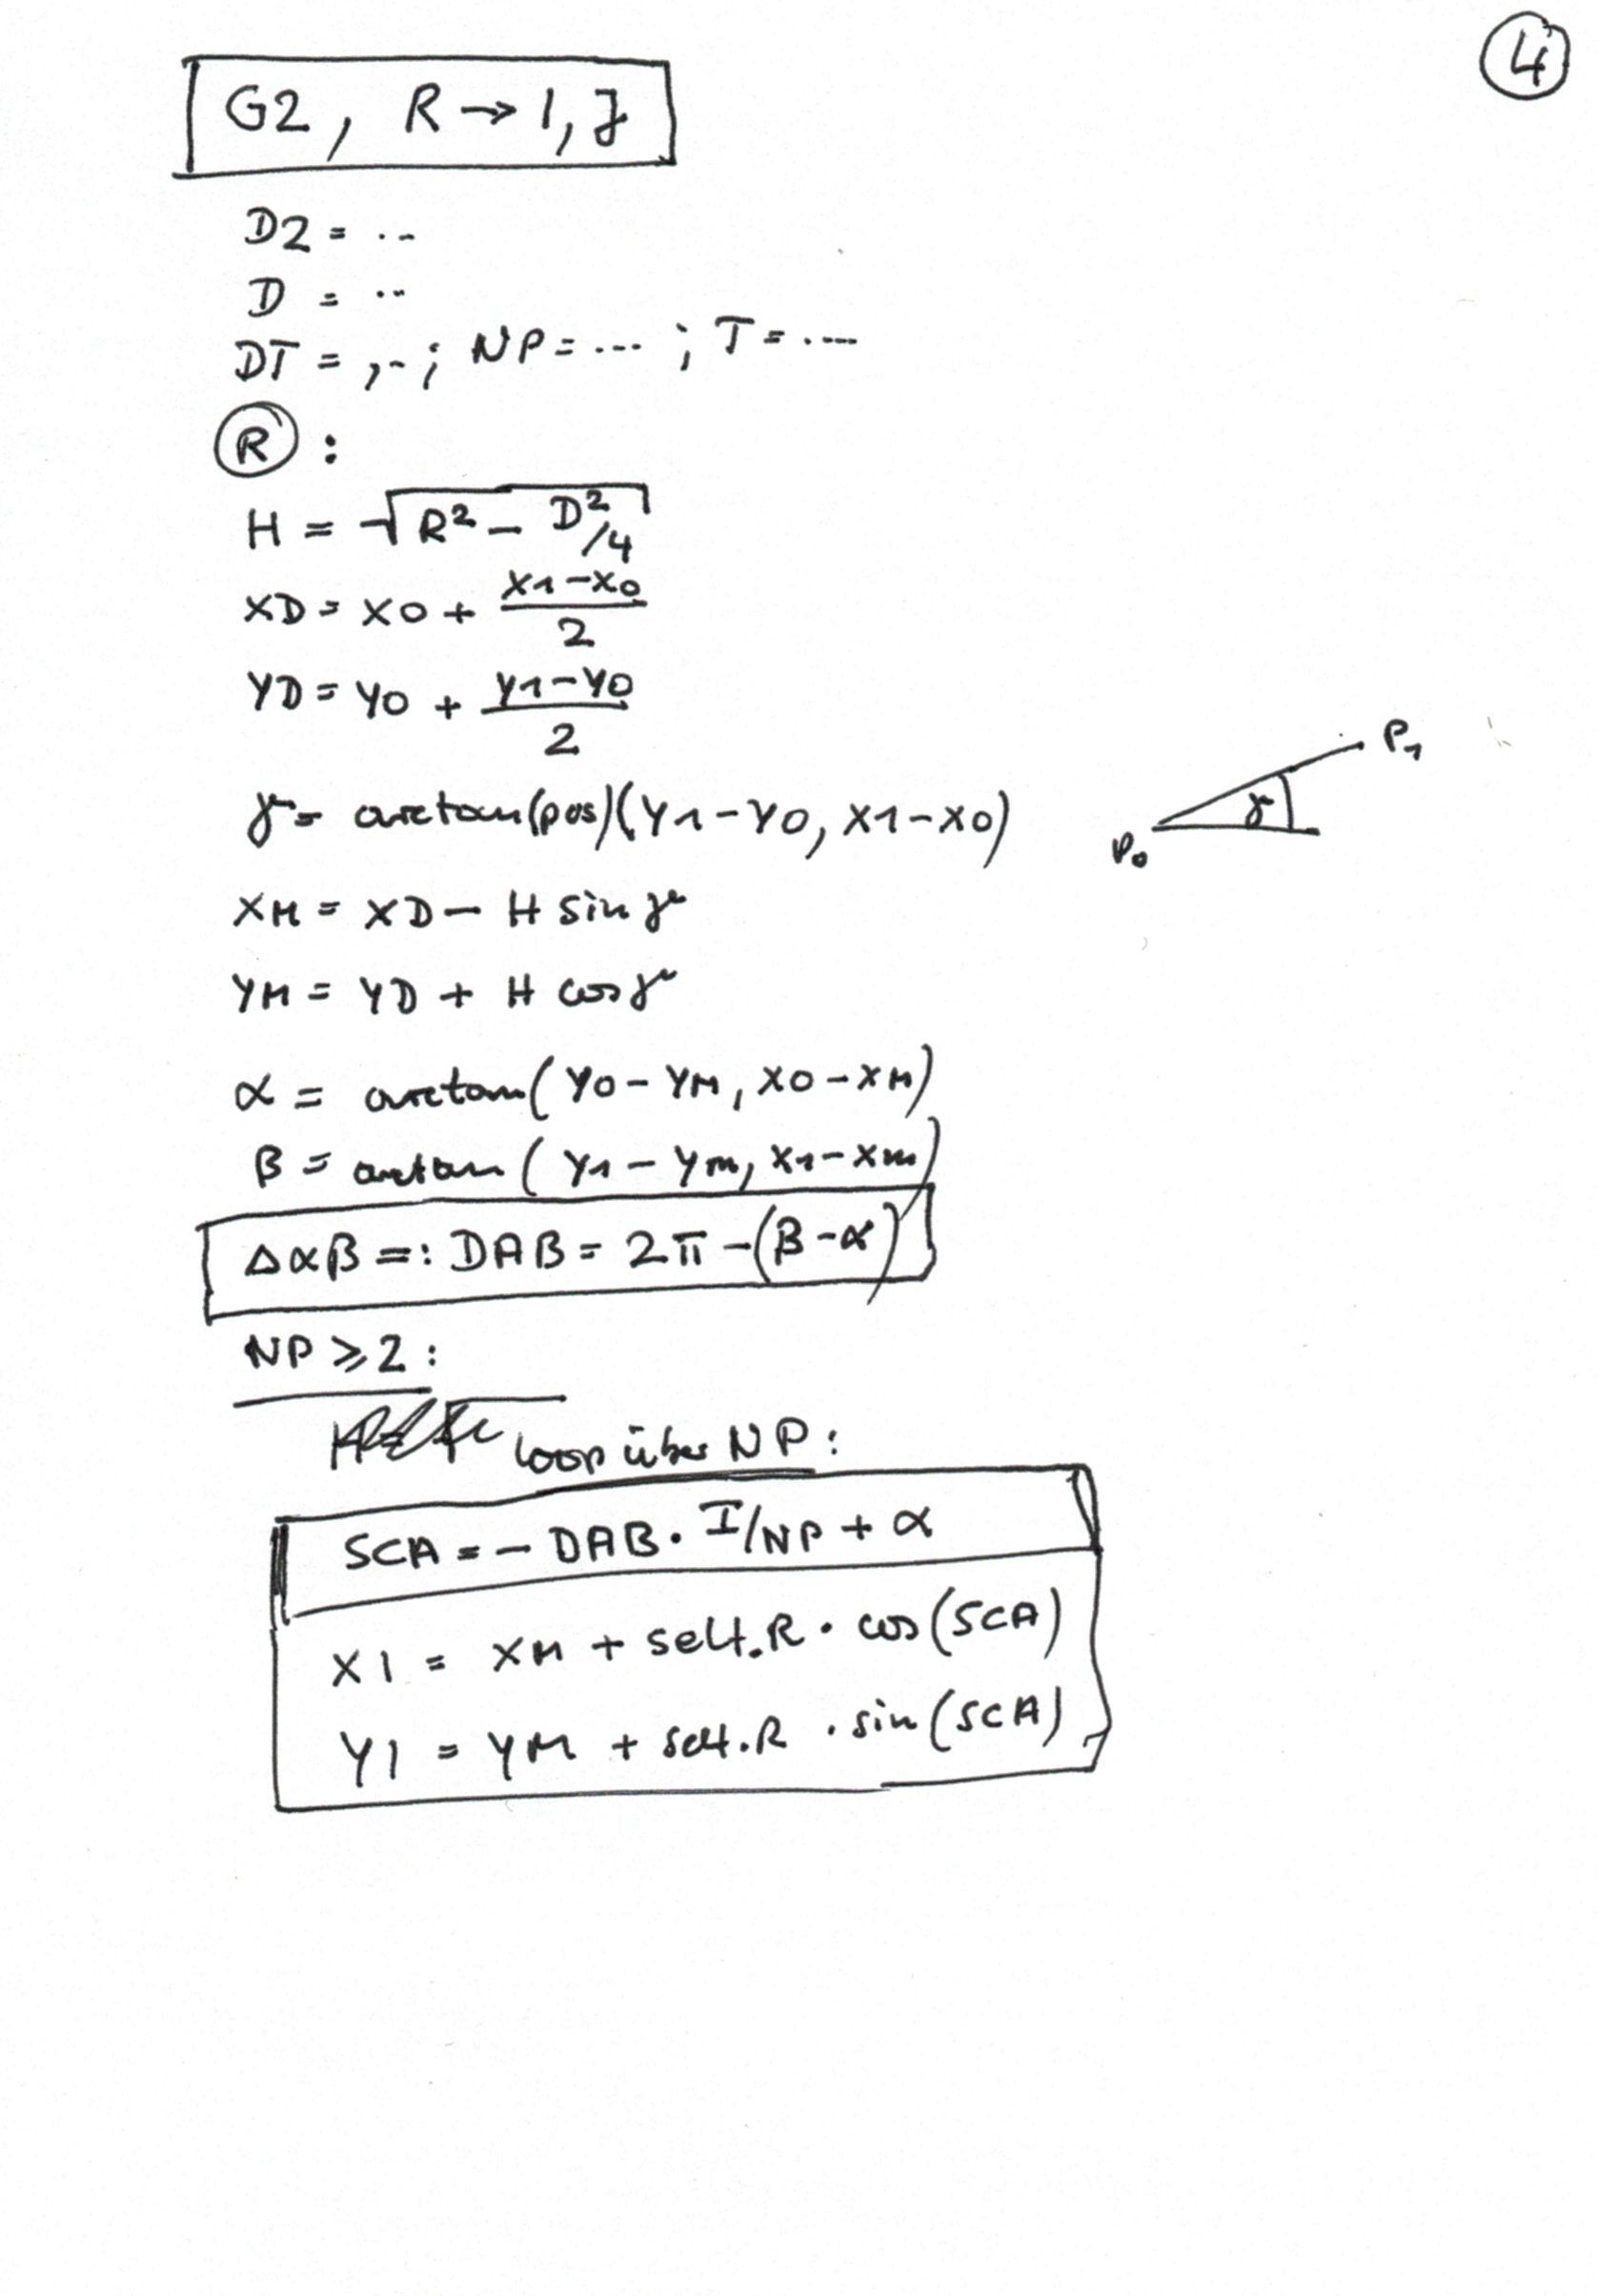 ④
G2, R → I, J
D2 = ..
D = ..
DT = ,.. ; NP = ... ; T = ....
Ⓡ :
H = √(R² − D²/4)
XD = X0 + (X1−X0)/2
YD = Y0 + (Y1−Y0)/2
γ = arctan(pos)(Y1−Y0, X1−X0)
P₁
γ
P₀
XM = XD − H sin γ
YM = YD + H cos γ
α = arctan( Y0 − YM, X0 − XM)
β = arctan ( Y1 − YM, X1 − XM)
Δαβ =: DAB = 2π −(β−α)
NP ⩾ 2 :
loop über NP :
SCA = − DAB · I/NP + α
XI = XM + self.R · cos(SCA)
YI = YM + self.R · sin(SCA)